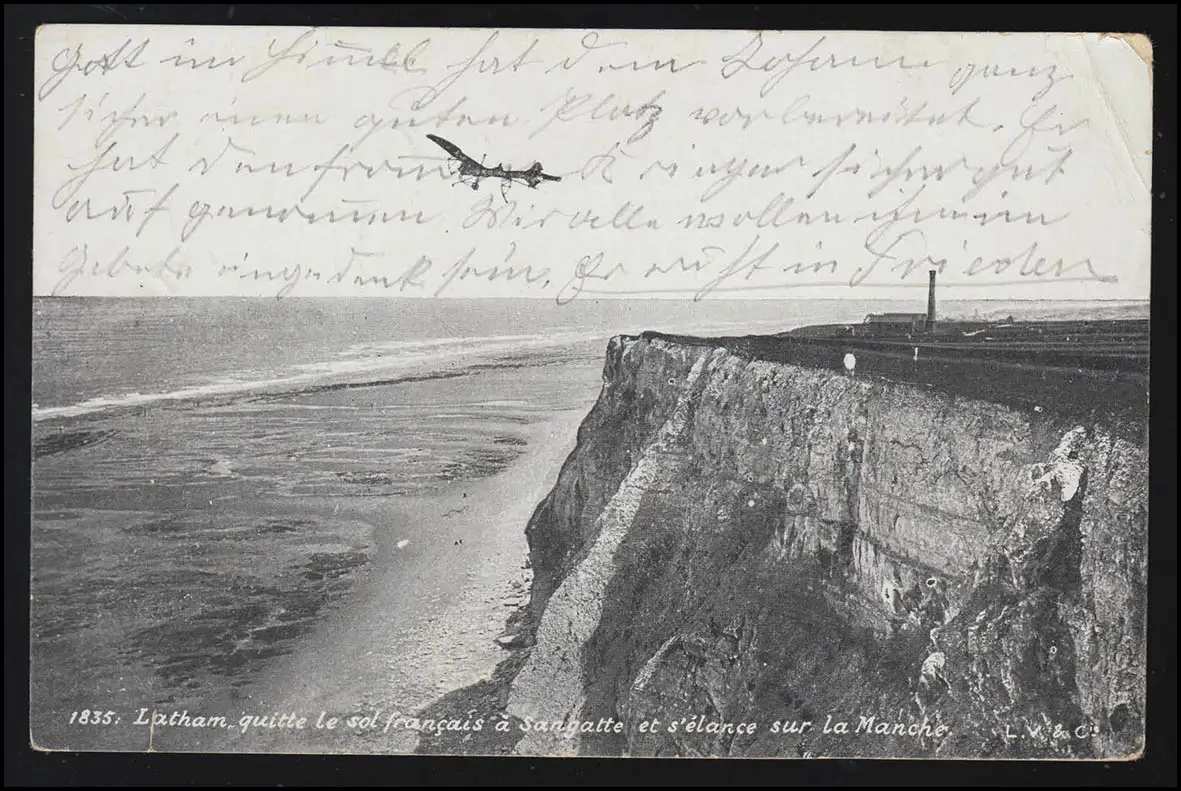 Gott im Himmel hat dem Johann ganz
sicher einen guten Platz vorbereitet. Er
hat den frommen Krieger sicher gut
aufgenommen. Wir alle wollen ihm im
Gebete eingedenk sein. Er ruht in Frieden
1835. Latham quitte le sol français à Sangatte et s'élance sur la Manche. L. V. & Cie